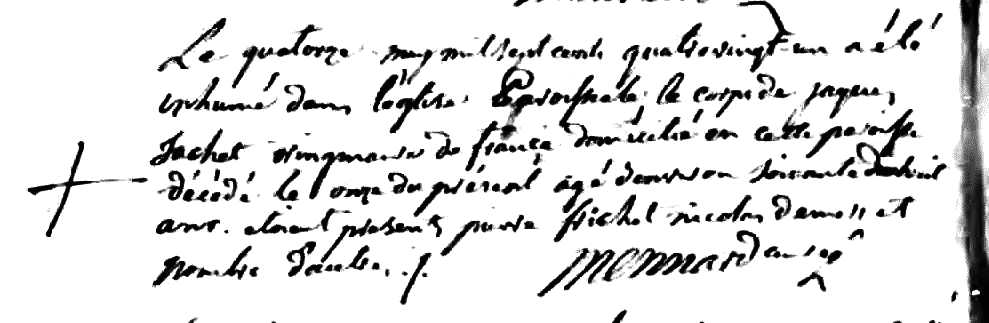 Le quatorze may mil sept cent quatre vingt un a été
inhumé dans l'église Paroissiale le corps de jaques
Sachet de france domicilié en cette paroisse
décédé le onze du présent agé d'environ soixante
ans. etoient présents pierre nicolas et
nombre d'autres ./.